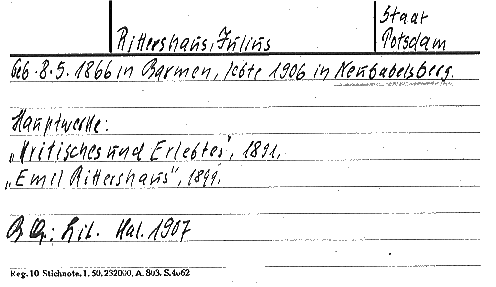 Staat
Rittershaus, Julius Potsdam
Geb. 8.5.1866 in Barmen, lebte 1906 in Neubabelsberg.
Hauptwerke:
„Kritisches und Erlebtes", 1891,
„Emil Rittershaus", 1899.
B Qu: Lit. Kal. 1907
Reg. 10 Stichnote. 1. 50. 232000. A. 803. S. 4062